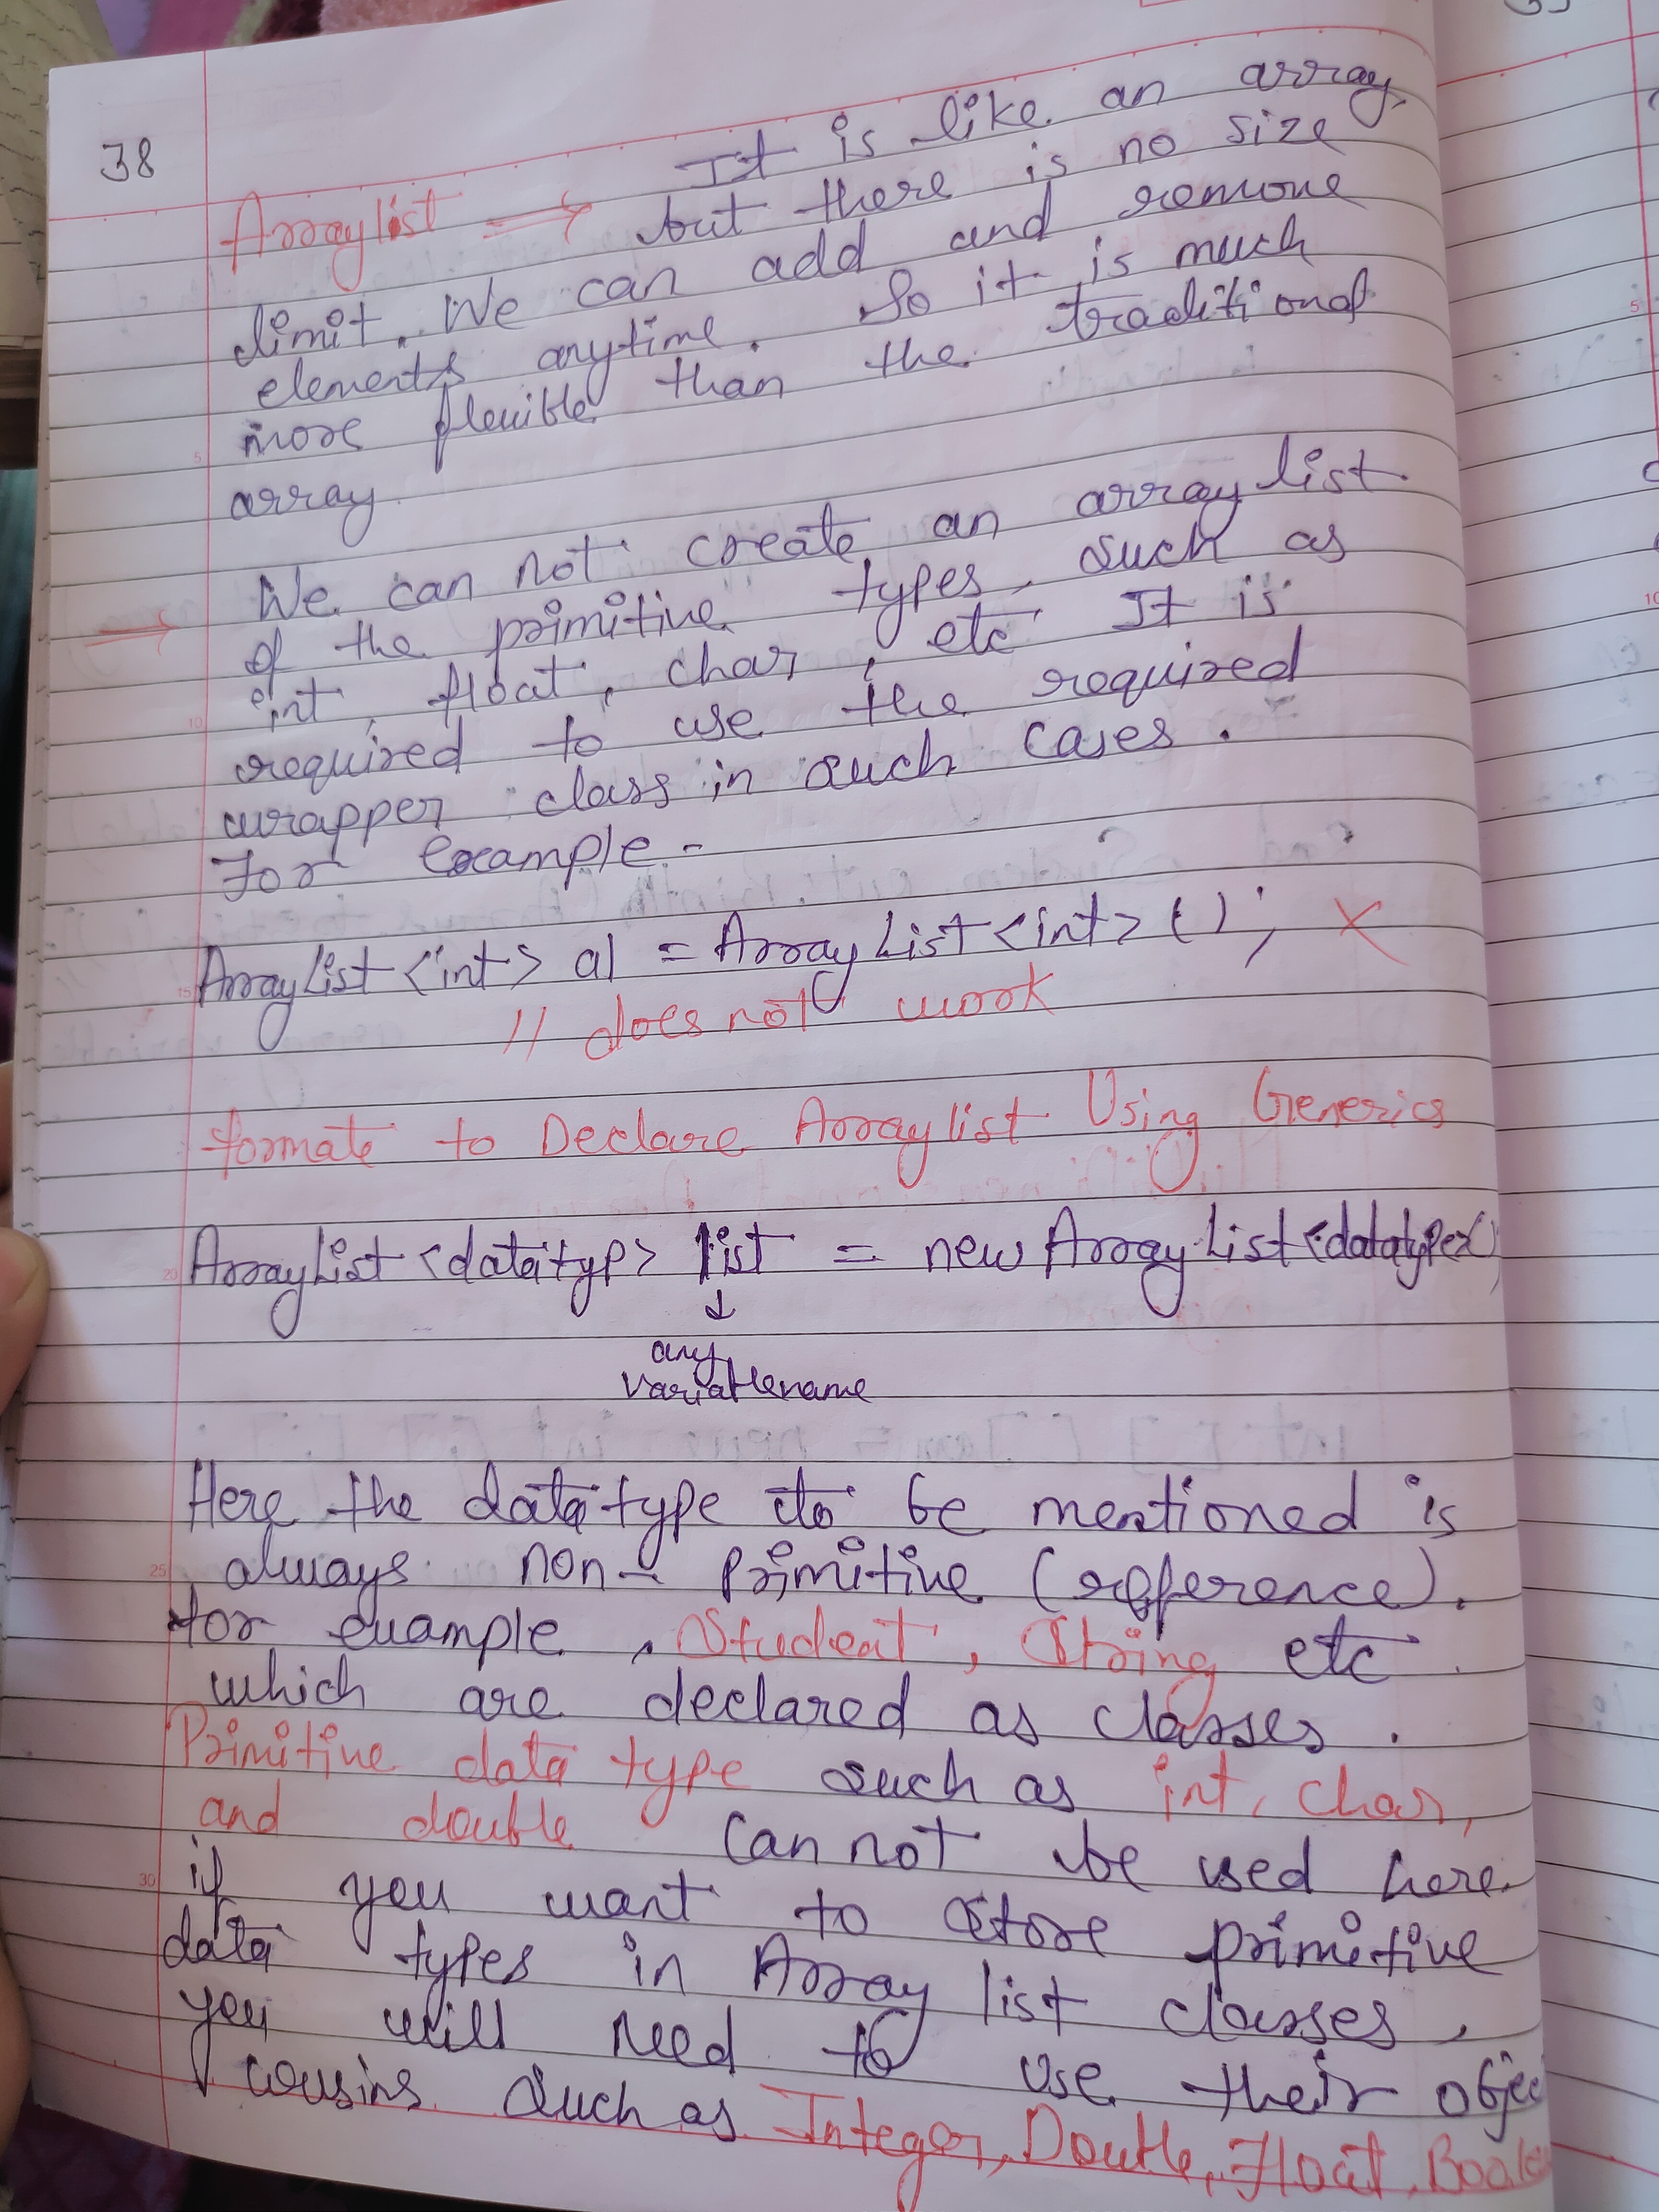 38
It is like an array,
Arraylist ⇒ but there is no size
limit. We can add and remove
elements anytime. So it is much
more flexible than the traditional
array
We can not create an array list
⇒ of the primitive types, such as
int, float, char, etc It is
required to use the required
wrapper class in such cases.
For example -
ArrayList <int> al = ArrayList <int> (); X
// does not work
formate to Declare Arraylist Using Generics
ArrayList <datatyp> list = new ArrayList <datatype>()
↓
any
variablename
Here the data type to be mentioned is
always non-primitive (reference).
for example, Student, String etc
which are declared as classes.
Primitive data type such as int, char,
and double can not be used here.
if you want to store primitive
data types in Array list classes,
you will need to use their objec
cousins such as Integer, Double, Float, Boole